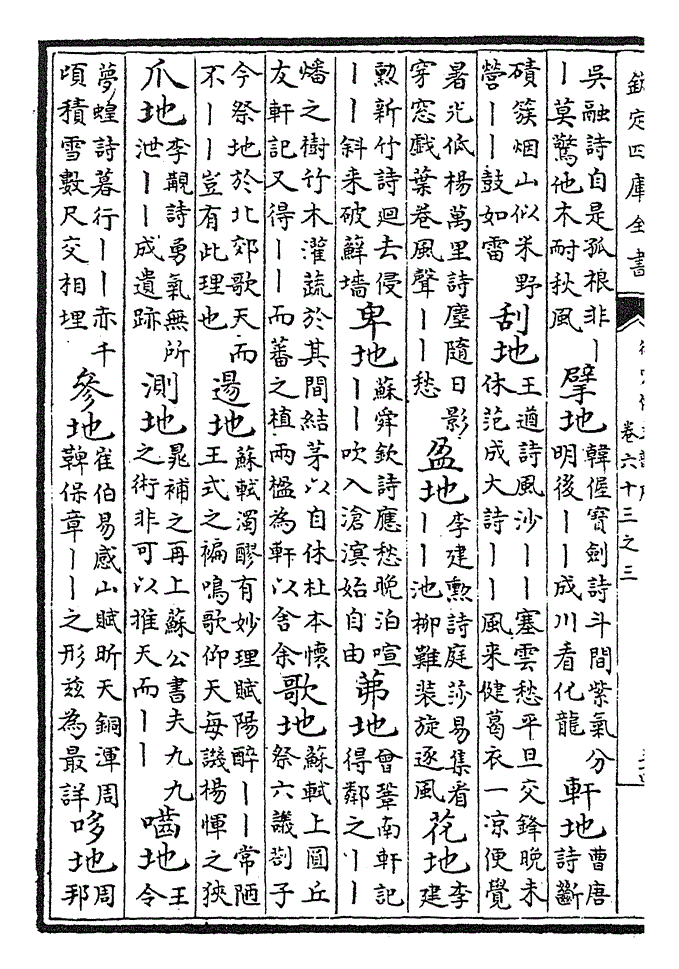 欽定四庫全書
卷六十三之三
吳融詩自是孤根非ー
ー莫驚他木耐秋風
擘地
韓偓寶劍詩斗間紫氣分
明後ーー成川看化龍
軒地
曹唐
詩斷
磧簇烟山似米野
營ーー鼓如雷
刮地
王遒詩風沙ーー塞雲愁平旦交鋒晚未
休范成大詩ーー風来健葛衣一涼便覺
暑光低楊萬里詩塵隨日影
穿窓戲葉巻風聲ーー愁
盈地
李建勲詩庭莎易集看
ーー池柳難裝旋逐風
花地
李
建
勲新竹詩廻去侵
ーー斜来破蘚墻
卑地
蘇舜欽詩應愁晚泊喧
ーー吹入滄溟始自由
茀地
曾鞏南軒記
得鄰之ーー
燔之樹竹木灌蔬於其間結茅以自休杜本懷
友軒記又得ーー而蕃之植兩楹為軒以舍余
歌地
蘇軾上圓丘
祭六議劄子
今祭地於北郊歌天而
不ーー豈有此理也
逿地
蘇軾濁醪有妙理賦陽醉ーー常陋
王式之褊嗚歌仰天每譏楊惲之狹
爪地
李覯詩勇氣無所
泄ーー成遺跡
測地
晁補之再上蘇公書夫九九
之術非可以推天而ーー
嚙地
王
令
夢蝗詩暮行ーー赤千
頃積雪數尺交相埋
參地
崔伯易感山賦昕天銅渾周
髀保章ーー之形兹為最詳
哆地
周
邦